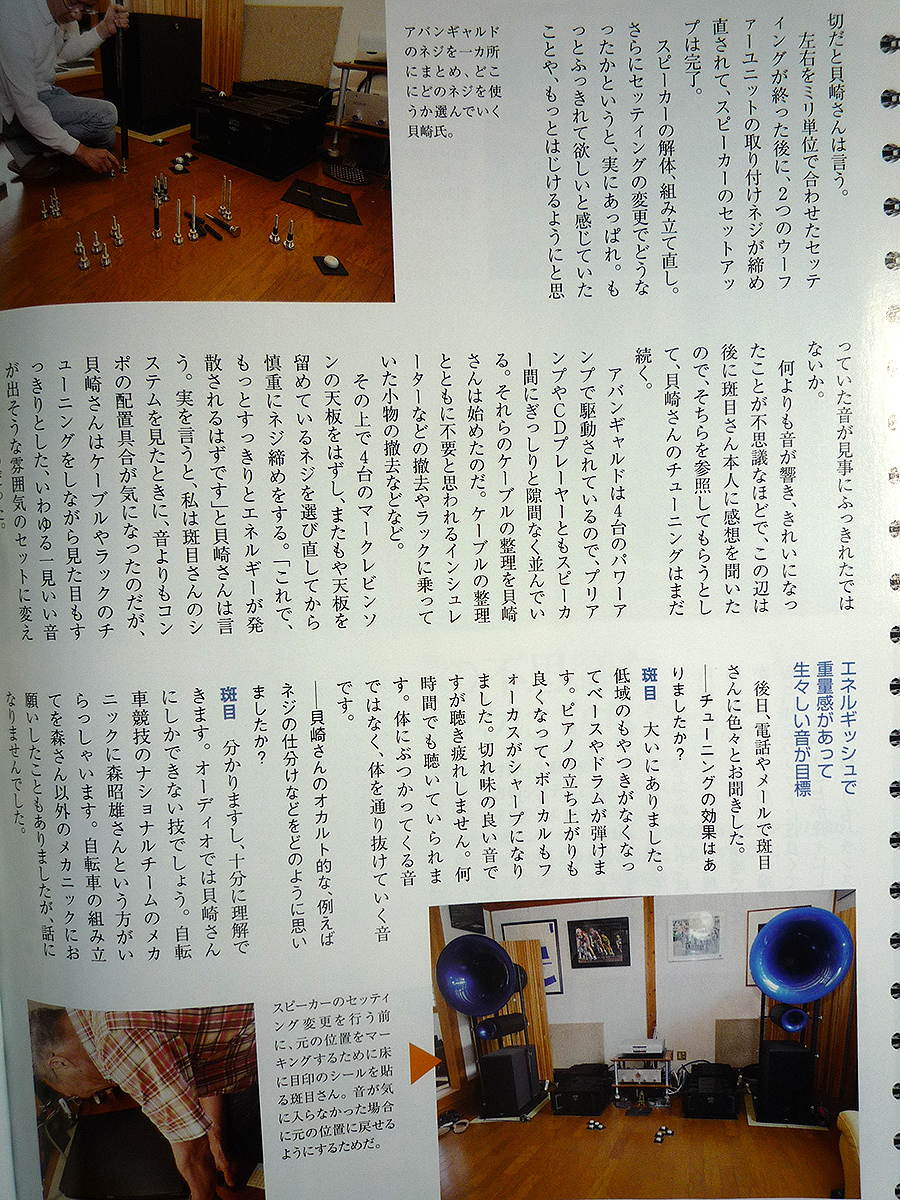 切だと貝崎さんは言う。
左右をミリ単位で合わせたセッテ
ィングが終った後に、2つのウーフ
ァーユニットの取り付けネジが締め
直されて、スピーカーのセットアッ
プは完了。
スピーカーの解体、組み立て直し。
さらにセッティングの変更でどうな
ったかというと、実にあっぱれ。も
っとふっきれて欲しいと感じていた
ことや、もっとはじけるようにと思
アバンギャルド
のネジを一カ所
にまとめ、どこ
にどのネジを使
うか選んでいく
貝崎氏。
っていた音が見事にふっきれたでは
ないか。
何よりも音が響き、きれいになっ
たことが不思議なほどで、この辺は
後に斑目さん本人に感想を聞いた
ので、そちらを参照してもらうとし
て、貝崎さんのチューニングはまだ
続く。
アバンギャルドは4台のパワーア
ンプで駆動されているので、プリア
ンプやCDプレーヤーともスピーカ
ー間にぎっしりと隙間なく並んでい
る。それらのケーブルの整理を貝崎
さんは始めたのだ。ケーブルの整理
とともに不要と思われるインシュレ
ーターなどの撤去やラックに乗って
いた小物の撤去などなど。
その上で4台のマークレビンソ
ンの天板をはずし、またもや天板を
留めているネジを選び直してから
慎重にネジ締めをする。「これで、
もっとすっきりとエネルギーが発
散されるはずです」と貝崎さんは言
う。実を言うと、私は斑目さんのシ
ステムを見たときに、音よりもコン
ポの配置具合が気になったのだが、
貝崎さんはケーブルやラックのチ
ューニングをしながら見た目もす
っきりとした、いわゆる一見いい音
が出そうな雰囲気のセットに変え
エネルギッシュで
重量感があって
生々しい音が目標
後日、電話やメールで斑目
さんに色々とお聞きした。
──チューニングの効果はあ
りましたか?
斑目　大いにありました。
低域のもやつきがなくなっ
てベースやドラムが弾けま
す。ピアノの立ち上がりも
良くなって、ボーカルもフ
ォーカスがシャープになり
ました。切れ味の良い音で
すが聴き疲れしません。何
時間でも聴いていられま
す。体にぶつかってくる音
ではなく、体を通り抜けていく音
です。
──貝崎さんのオカルト的な、例えば
ネジの仕分けなどをどのように思い
ましたか?
斑目　分かりますし、十分に理解で
きます。オーディオでは貝崎さん
にしかできない技でしょう。自転
車競技のナショナルチームのメカ
ニックに森昭雄さんという方がい
らっしゃいます。自転車の組み立
てを森さん以外のメカニックにお
願いしたこともありましたが、話に
なりませんでした。
スピーカーのセッティ
ング変更を行う前
に、元の位置をマー
キングするために床
に目印のシールを貼
る斑目さん。音が気
に入らなかった場合
に元の位置に戻せる
ようにするためだ。